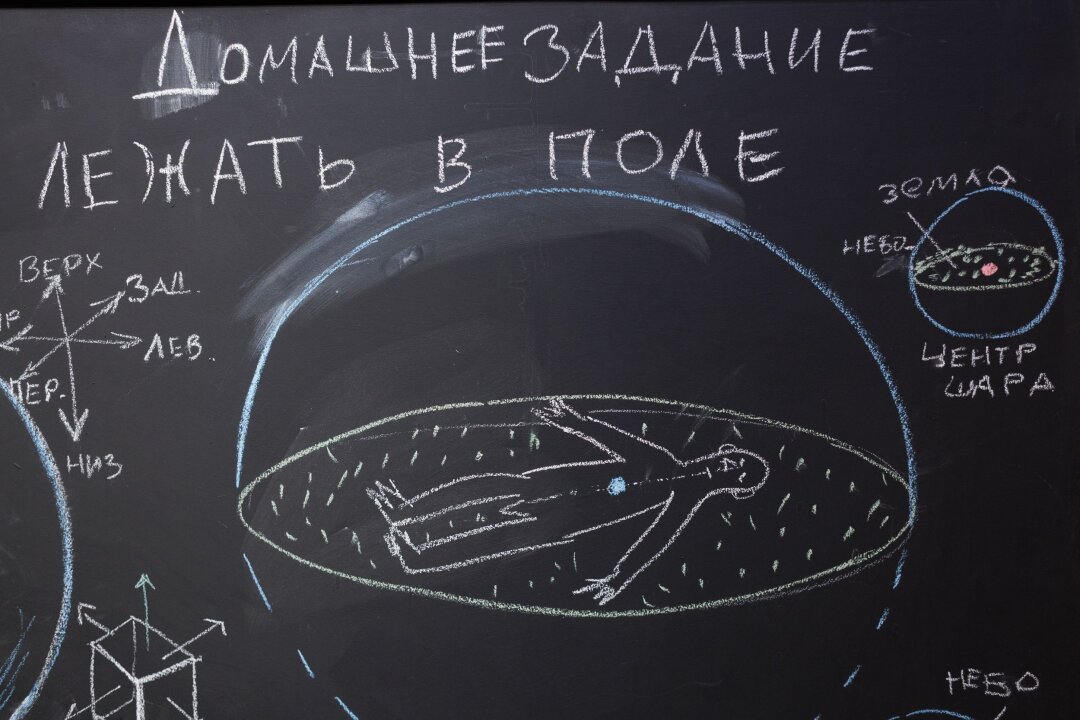 ДОМАШНЕЕ ЗАДАНИЕ
ЛЕЖАТЬ В ПОЛЕ
ЗЕМЛЯ
НЕБО
ЦЕНТР
ШАРА
ВЕРХ
ЗАД.
ЛЕВ.
ПЕР.
НИЗ
НЕБО